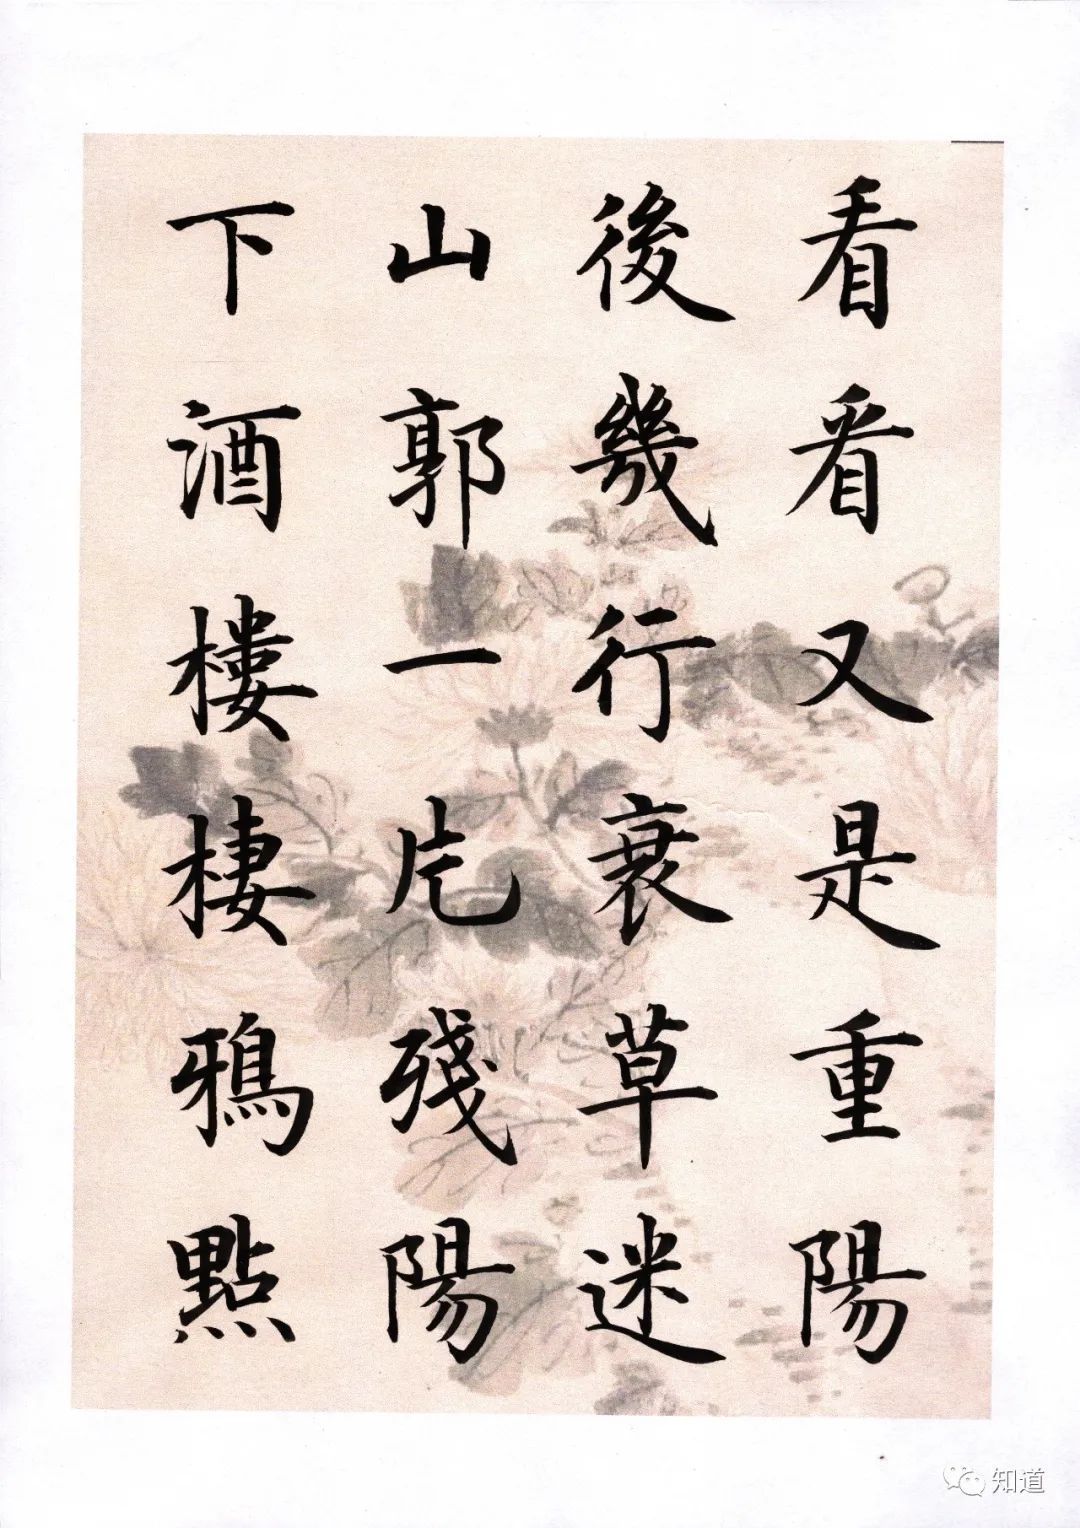 看看又是重陽
後幾行衰草迷
山郭一片殘陽
下酒樓棲鴉點
知道